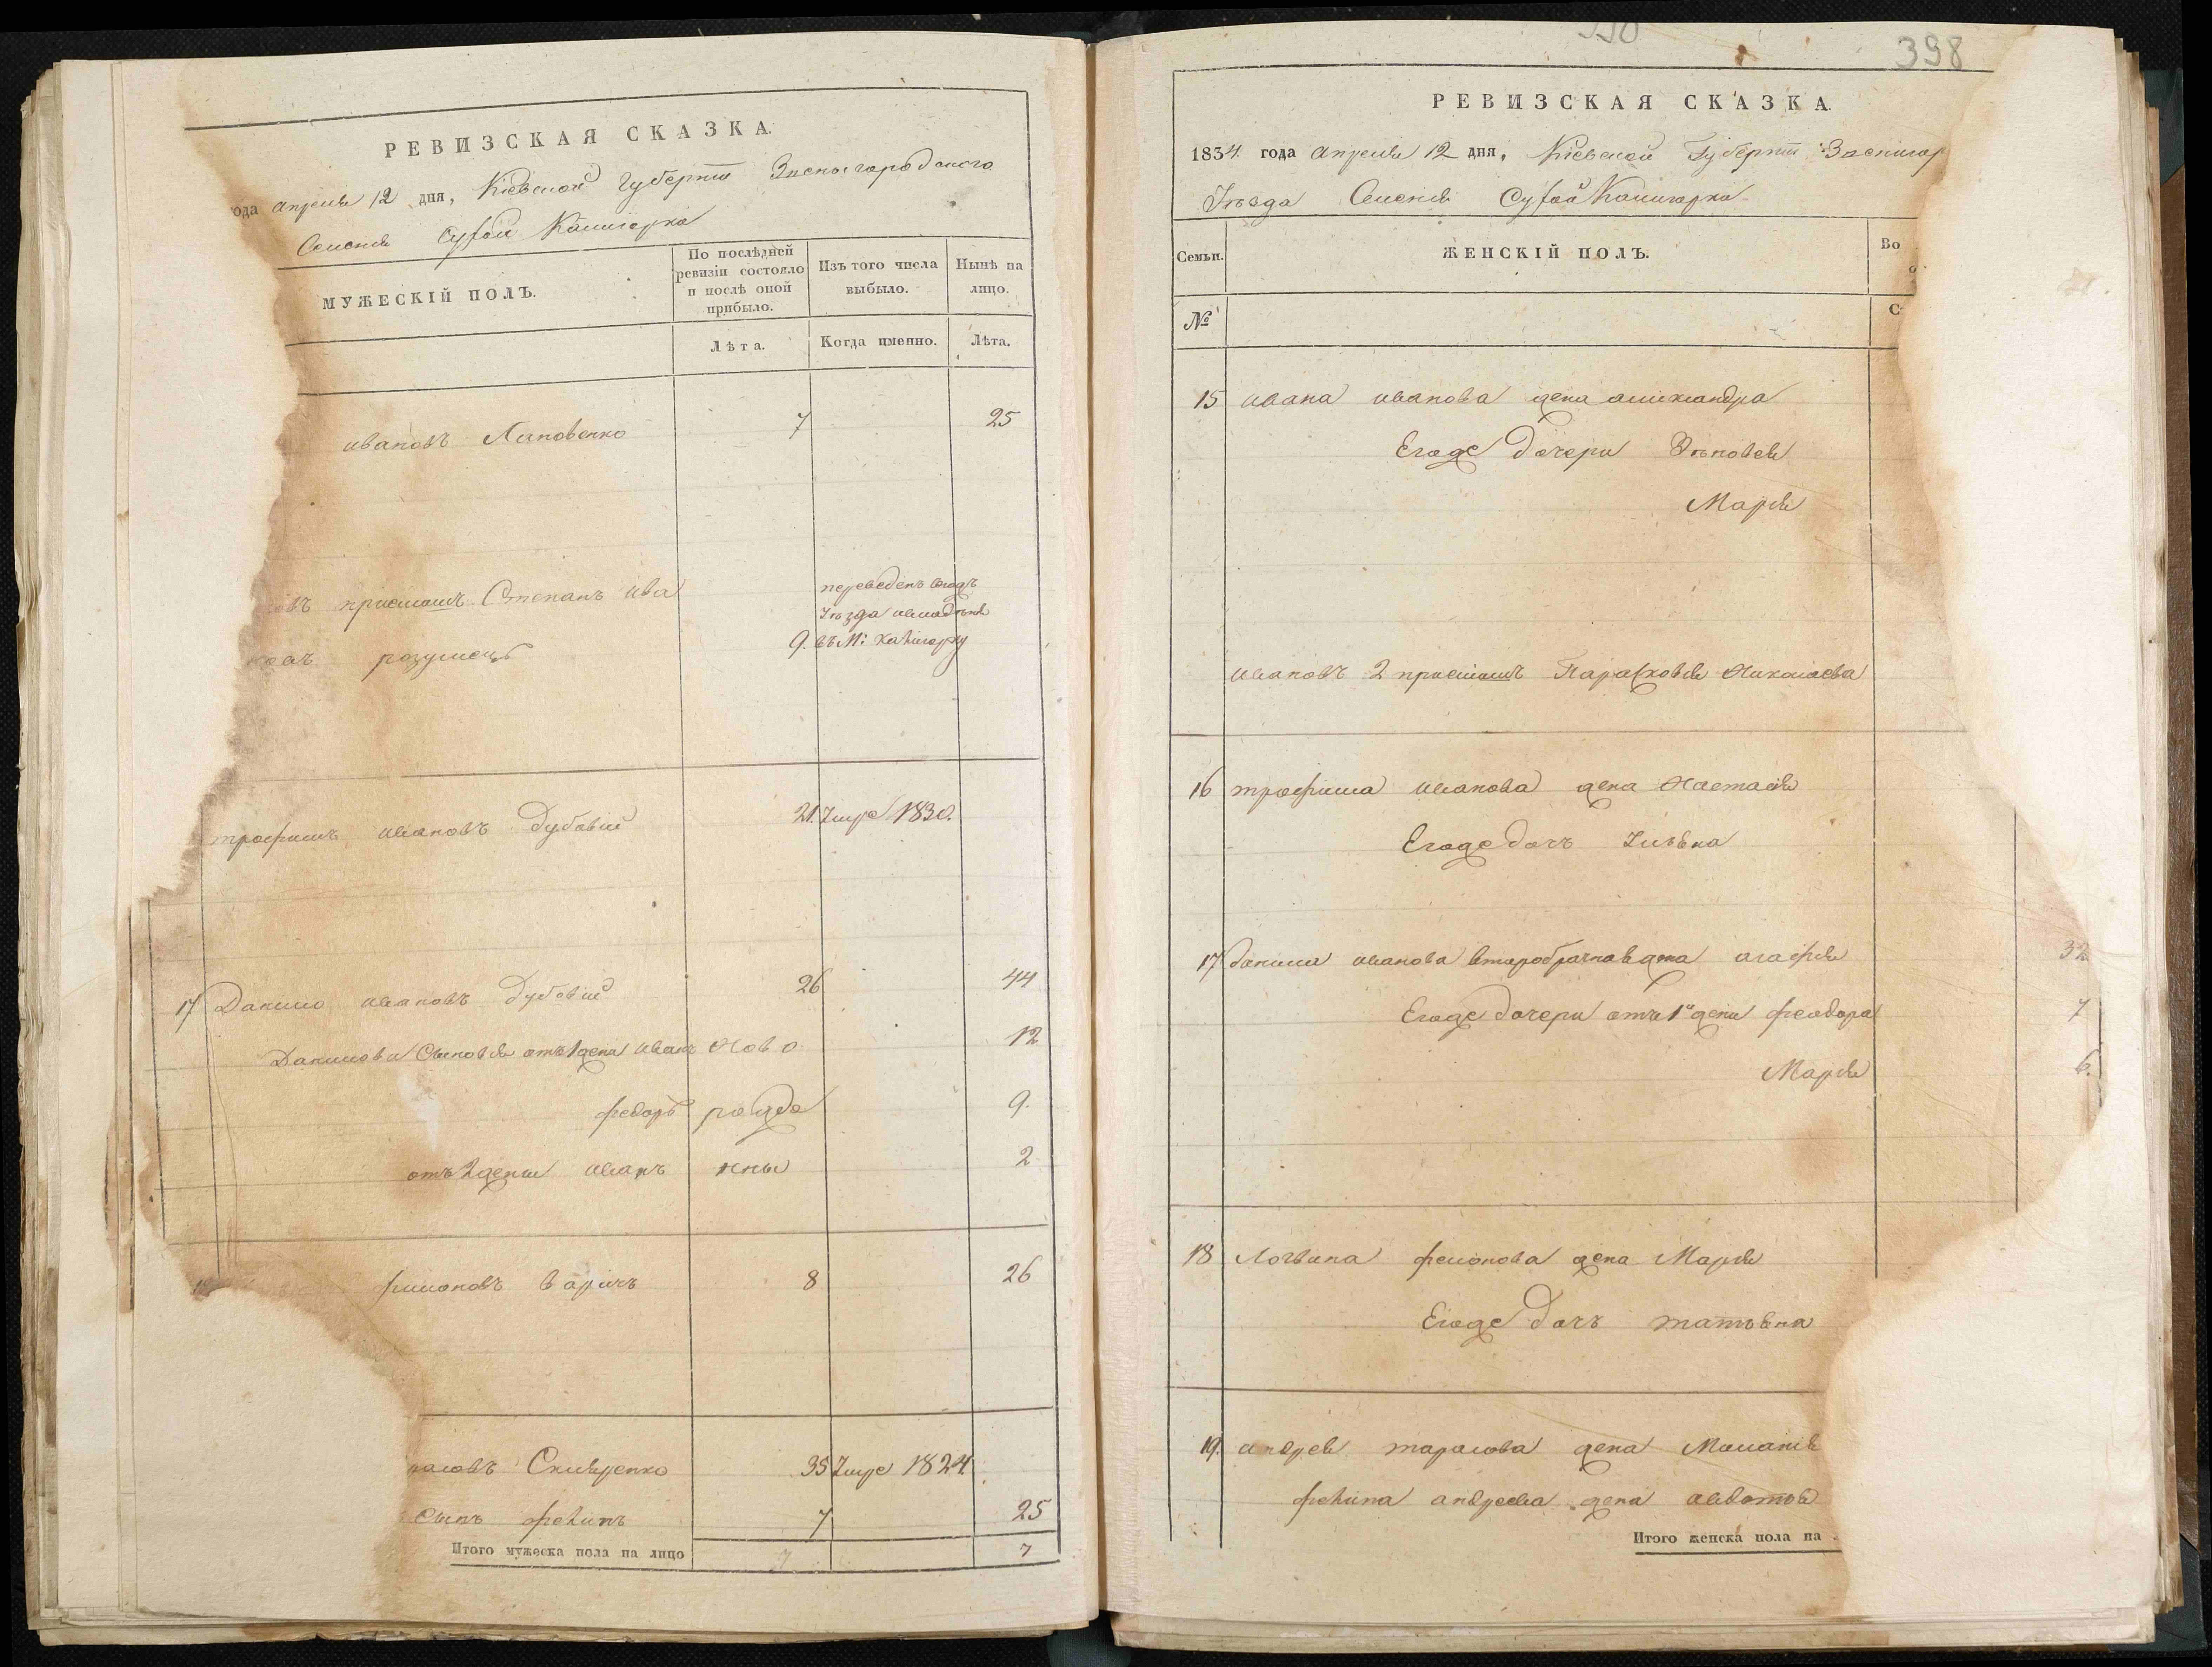 РЕВИЗСКАЯ СКАЗКА.
ода апреля 12 дня, Кіевской Губерніи Звенигородского
Селенія Сухой Калигорка
МУЖЕСКІЙ ПОЛЪ.
По послѣдней ревизіи состояло и послѣ оной прибыло.
Изъ того числа выбыло.
Нынѣ на лицо.
Лѣта.
Когда именно.
Лѣта.
ивановъ Лановенко 7 25
овъ приемышъ Степанъ ива
переведенъ
уѣзда
9. въ М: Калигорку
трофимъ ивановъ дубовій 21. умре 1830.
17 Данило ивановъ дубовій 26 44
Данилова Сыновья отъ 1 жены иванъ Ново 12
федоръ рожде 9.
отъ 2 жены иванъ нны 2
18 филоновъ варичъ 8 26
расовъ Скляренко 35 умре 1824.
Сынъ фекипъ 7 25
Итого мужеска пола на лицо 7
398
РЕВИЗСКАЯ СКАЗКА.
1834. года апреля 12 дня, Кіевской Губерніи Звенигор
Уѣзда Селенія Сухой Калигорка
Семьи.
ЖЕНСКІЙ ПОЛЪ.
Во
№
С
15 ивана иванова жена александра
Егоже дочери Зѣновея
Марія
ивановъ 2 приемышъ Парасковія Николаева
16 трофима иванова жена Настасія
Егоже дочъ Улѣяна
17 данила иванова второбрачная жена агафія 32
Егоже дочери отъ 1й жены феодора 7
Марія 6.
18 Логвина филонова жена Марія
Егоже дочъ татьяна
19. андрея тарасова жена Маланія
фекипа андреева жена авдотія
Итого женска пола на